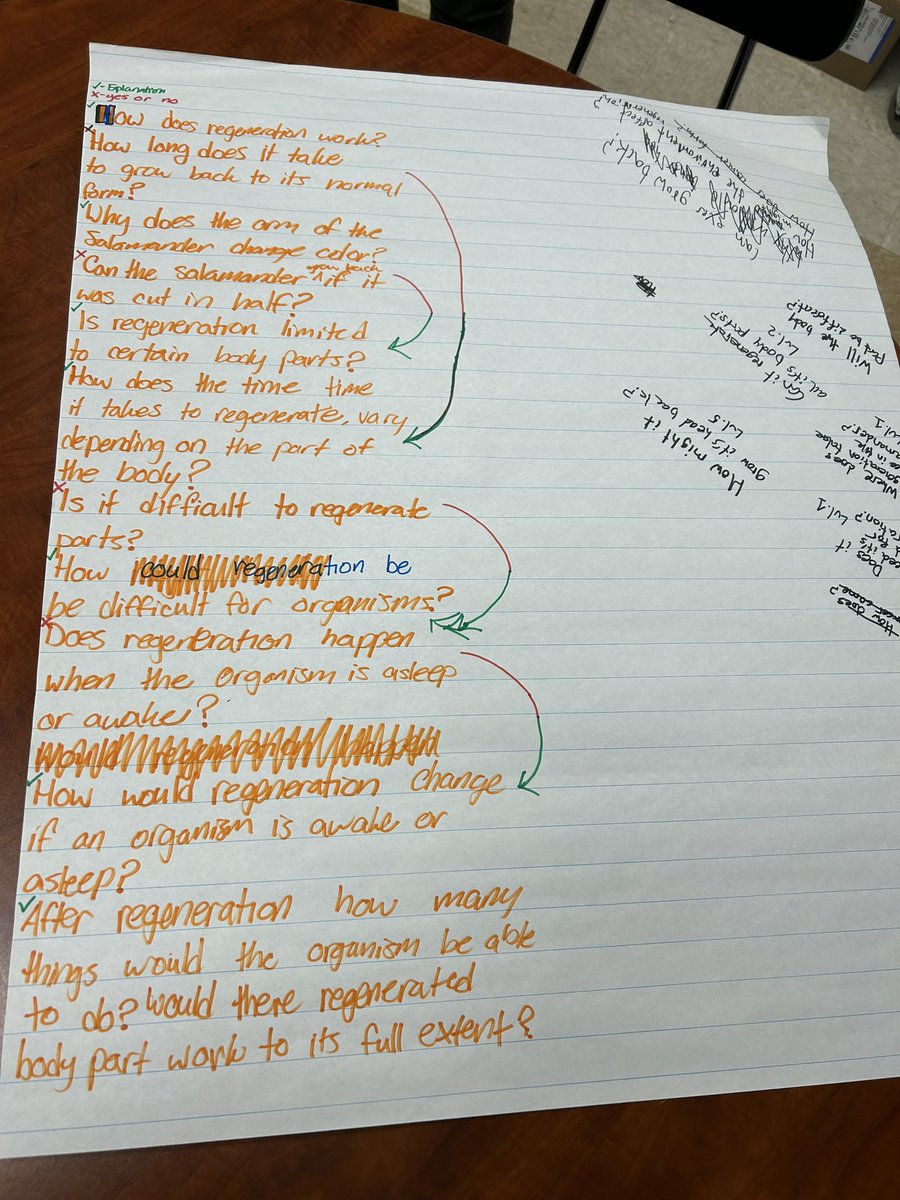 ✓- Explanation
x-yes or no
✓ How does regeneration work?
x How long does it take
to grow back to its normal
form?
✓ Why does the arm of the
Salamander change color?
x Can the salamander ^grow back if it
was cut in half?
✓ Is regeneration limited
to certain body parts?
✓ How does the time time
it takes to regenerate, vary
depending on the part of
the body?
x Is it difficult to regenerate
parts?
✓ How could regeneration be
be difficult for organisms?
x Does regeneration happen
when the organism is asleep
or awake?
Would regeneration happen
✓ How would regeneration change
if an organism is awake or
asleep?
✓ After regeneration how many
things would the organism be able
to do? Would there regenerated
body part work to its full extent?
How does
regeneration?
the environment affect
Can
eyes grow back?
Will the body
Part be different?
Can it regenerate
all it's body parts?
Lvl. 2
How might it
grow it's head back?
Lvl. 3
Where does
Lvl. 1
Does it
Lvl. 1
How does